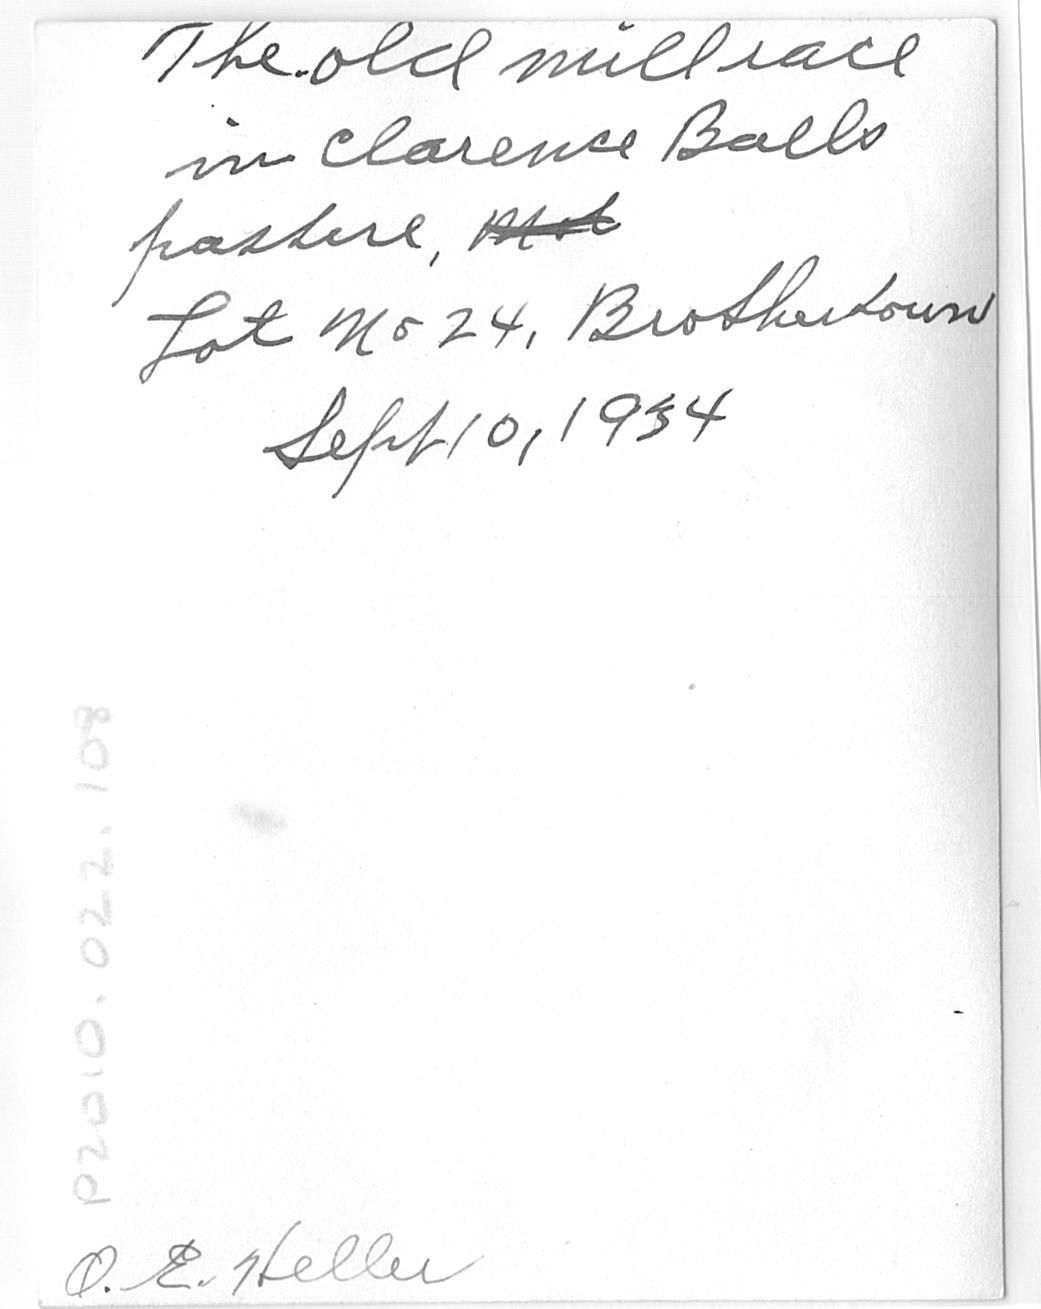 The old mill race
in Clarence Balls
pasture,
Lot No 24, Brothertown
Sept 10, 1934
P2010.022.108
O. E. Heller